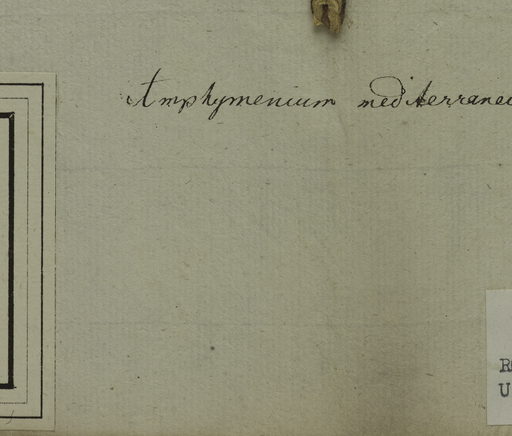 Amphymenium mediterrane
R
U